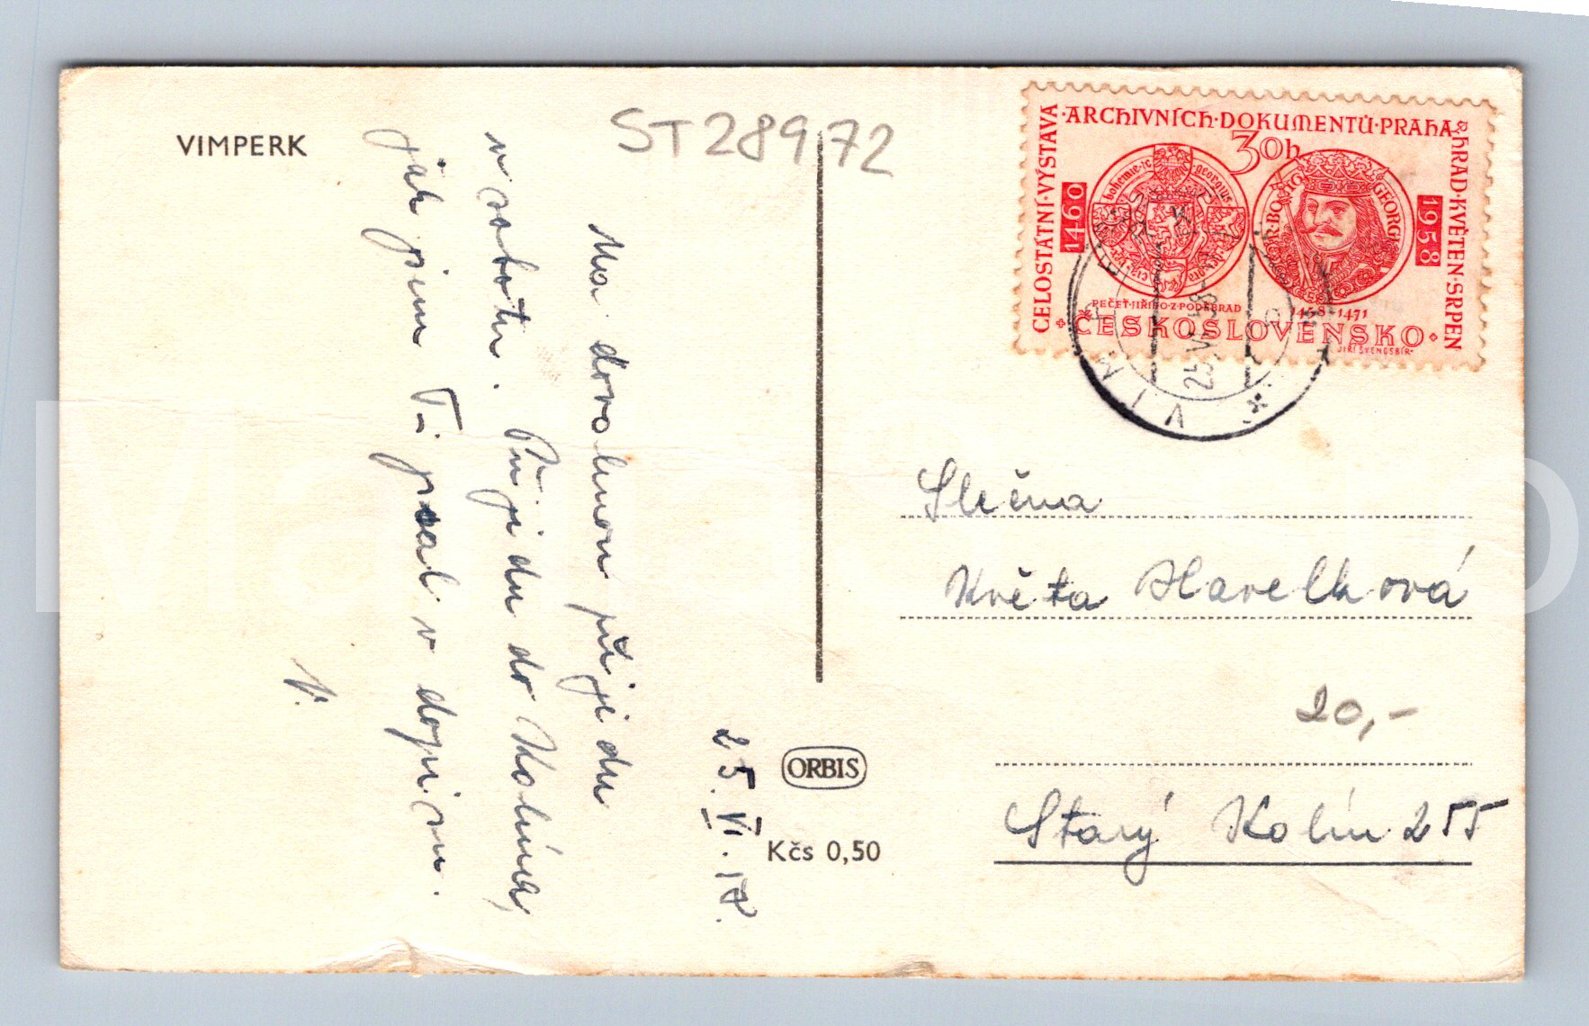 VIMPERK
ST 28972
25. VI. 18.
Na dovolenou přijedu
v sobotu. Přijedu do Kolína,
jak jsem Ti psal v dopisu.
V.
ORBIS
Kčs 0,50
CELOSTÁTNÍ·VÝSTAVA·ARCHIVNÍCH·DOKUMENTŮ·PRAHA·HRAD·KVĚTEN-SRPEN
30h
1460
1958
GEORGI
PEČEŤ·JIŘÍHO·Z·PODĚBRAD
1458-1471
ČESKOSLOVENSKO
JIŘÍ ŠVENGSBÍR
VIMPERK
Slečna
Květa Havelková
20,-
Starý Kolín 255